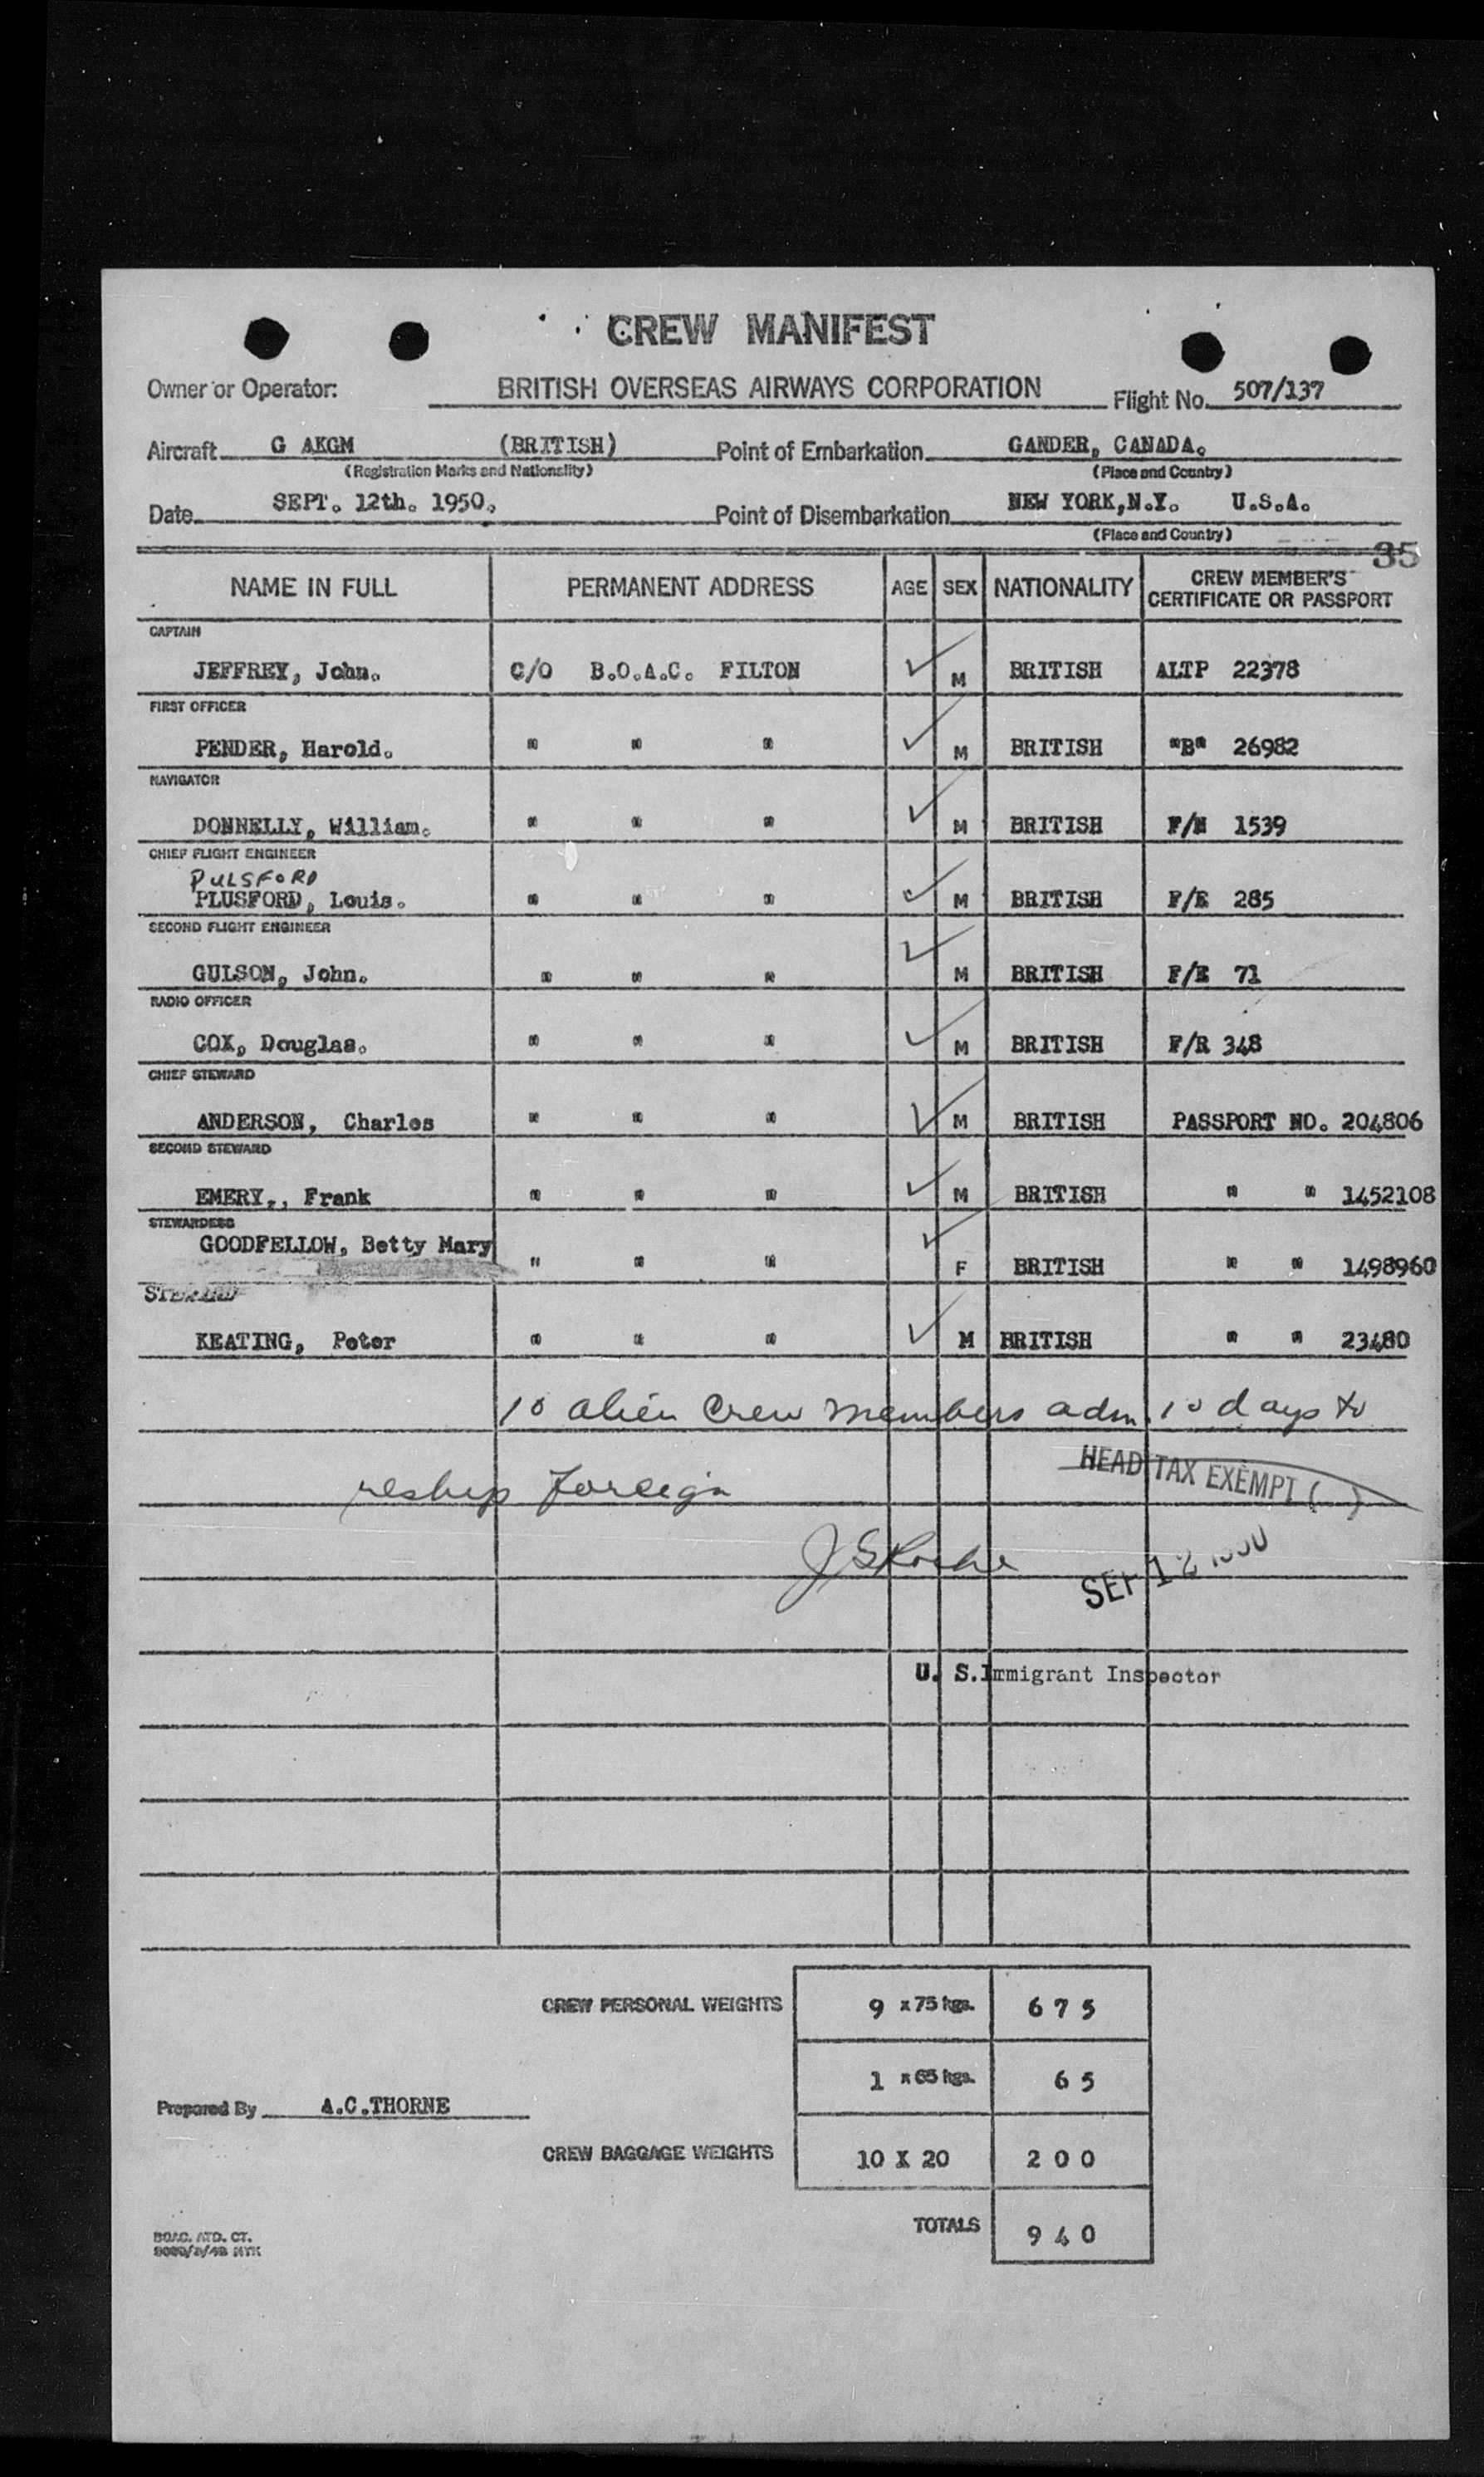 CREW MANIFEST
Owner or Operator: BRITISH OVERSEAS AIRWAYS CORPORATION Flight No. 507/137
Aircraft G AKGM (BRITISH) Point of Embarkation GANDER, CANADA.
(Registration Marks and Nationality) (Place and Country)
Date SEPT. 12th. 1950. Point of Disembarkation NEW YORK,N.Y. U.S.A.
(Place and Country)
35
NAME IN FULL PERMANENT ADDRESS AGE SEX NATIONALITY CREW MEMBER'S CERTIFICATE OR PASSPORT
CAPTAIN
JEFFREY, John. C/O B.O.A.C. FILTON ✓ M BRITISH ALTP 22378
FIRST OFFICER
PENDER, Harold. " " " ✓ M BRITISH "B" 26982
NAVIGATOR
DONNELLY, William. " " " ✓ M BRITISH F/N 1539
CHIEF FLIGHT ENGINEER
PULSFORD
PLUSFORD, Louis. " " " ✓ M BRITISH F/E 285
SECOND FLIGHT ENGINEER
GULSON, John. " " " ✓ M BRITISH F/E 71
RADIO OFFICER
COX, Douglas. " " " ✓ M BRITISH F/R 348
CHIEF STEWARD
ANDERSON, Charles " " " ✓ M BRITISH PASSPORT NO. 204806
SECOND STEWARD
EMERY,, Frank " " " ✓ M BRITISH " " 1452108
STEWARDESS
GOODFELLOW, Betty Mary " " " ✓ F BRITISH " " 1498960
KEATING, Peter " " " ✓ M BRITISH " " 23480
10 alien crew members adm. 10 days to
reship foreign
HEAD TAX EXEMPT ( )
SEP 12 1950
U. S.Immigrant Inspector
CREW PERSONAL WEIGHTS 9 x 75 kgs. 6 7 5
1 x 65 kgs. 6 5
Prepared By A.C.THORNE
CREW BAGGAGE WEIGHTS 10 X 20 2 0 0
TOTALS 9 4 0
BOAC. ATD. CT.